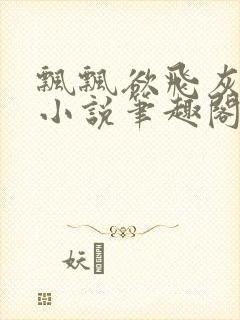 飄飄欲飛灰
小說筆趣閣
妖